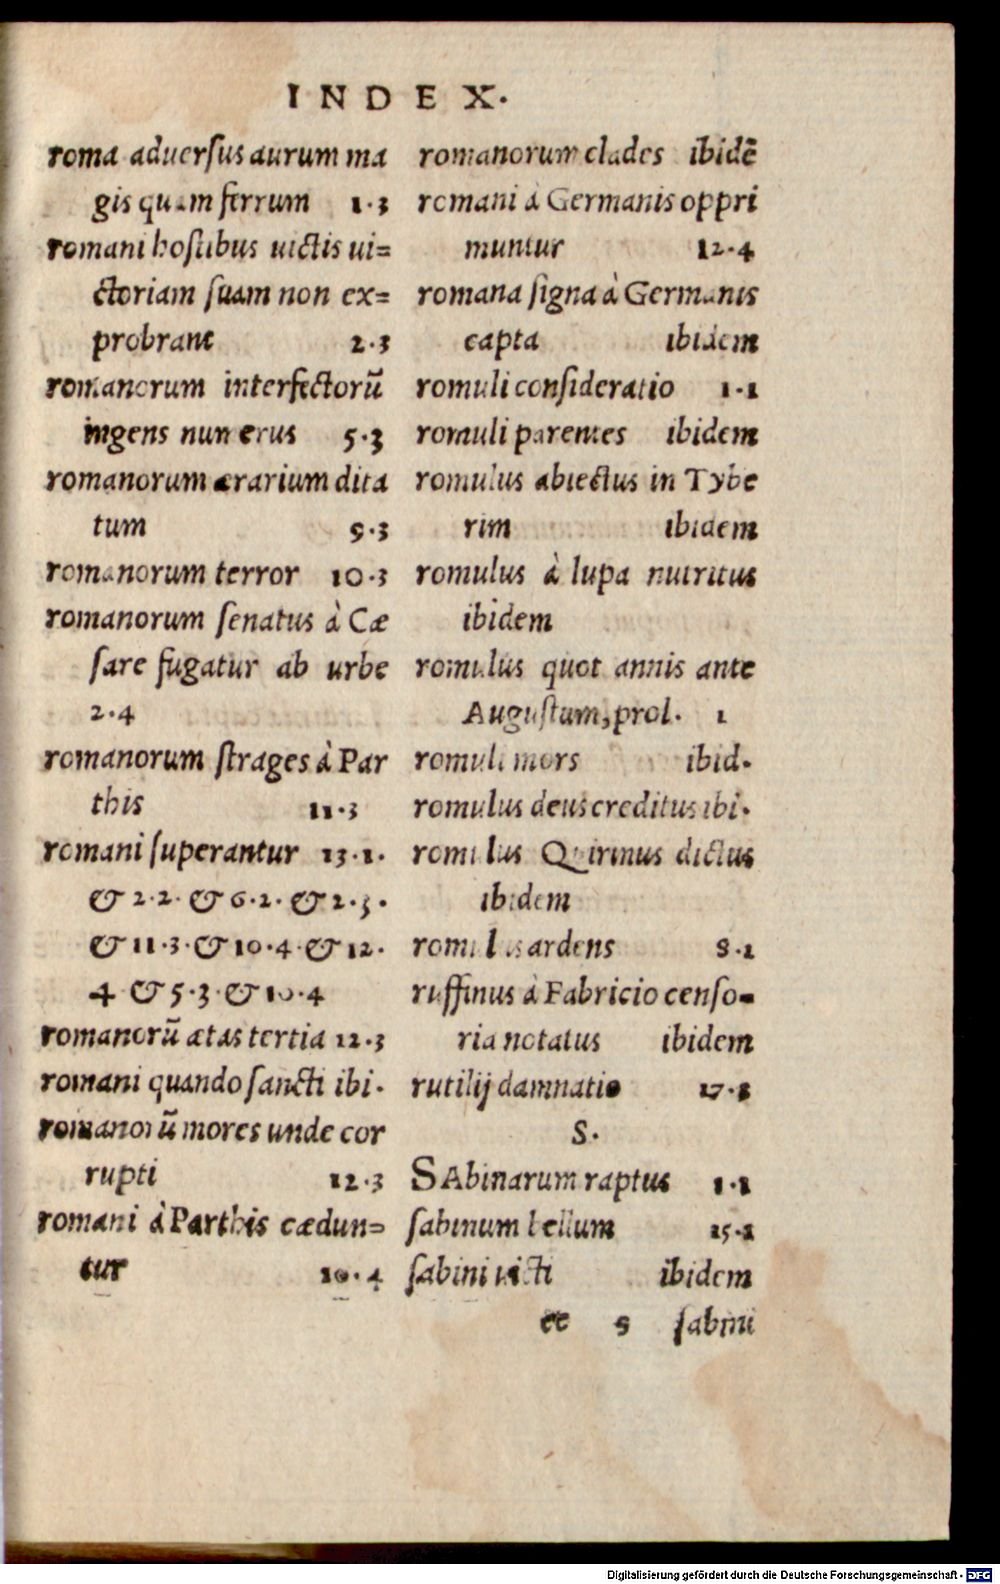 INDEX.
roma aduersus aurum ma
gis quam ferrum 1.3
romani hostibus uictis ui=
ctoriam suam non ex=
probrant 2.3
romanorum interfectorũ
ingens numerus 5.3
romanorum ærarium dita
tum 9.3
romanorum terror 10.3
romanorum senatus à Cæ
sare fugatur ab urbe
2.4
romanorum strages à Par
this 11.3
romani superantur 13.1.
& 2.2. & 6.2. & 2.3.
& 11.3. & 10.4. & 12.
4 & 5.3. & 10.4
romanorũ ætas tertia 12.3
romani quando sancti ibi.
romanorũ mores unde cor
rupti 12.3
romani à Parthis cædun=
tur 10.4
romanorum clades ibidẽ
romani à Germanis oppri
muntur 12.4
romana signa à Germanis
capta ibidem
romuli consideratio 1.1
romuli parentes ibidem
romulus abiectus in Tybe
rim ibidem
romulus à lupa nutritus
ibidem
romulus quot annis ante
Augustum, prol. 1
romuli mors ibid.
romulus deus creditus ibi.
romulus Quirinus dictus
ibidem
romulus ardens 8.1
ruffinus à Fabricio censo=
ria notatus ibidem
rutilij damnatio 17.3
S.
SAbinarum raptus 1.1
sabinum bellum 15.1
sabini uicti ibidem
ee 5 sabini
Digitalisierung gefördert durch die Deutsche Forschungsgemeinschaft - DFG